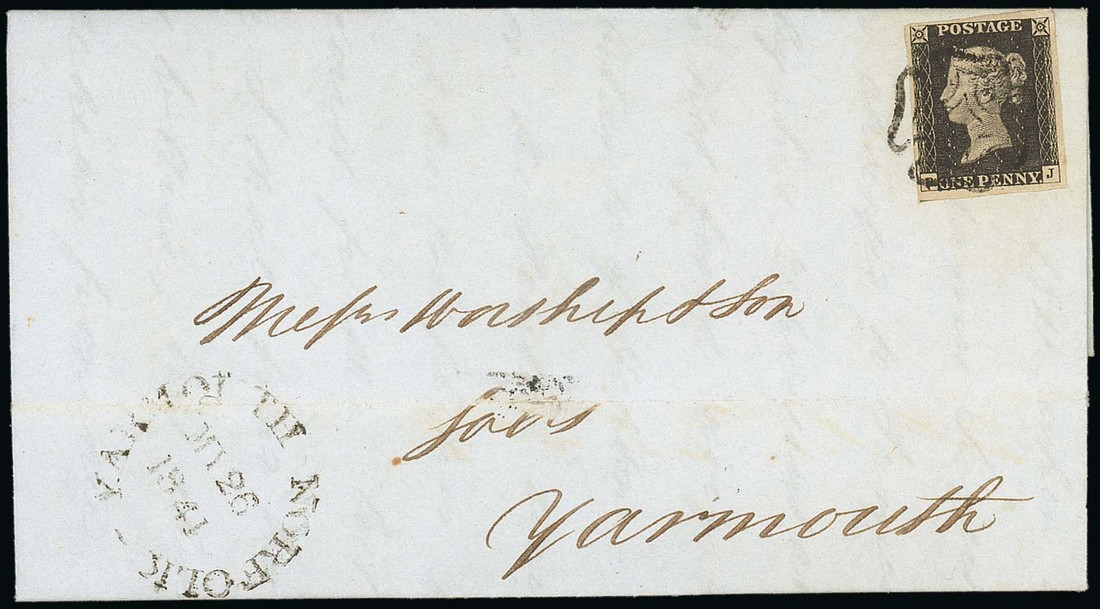 POSTAGE
ONE PENNY.
J
Messrs Worship & Son
Sols
Yarmouth
YARMOUTH NORFOLK
MY 26
1841